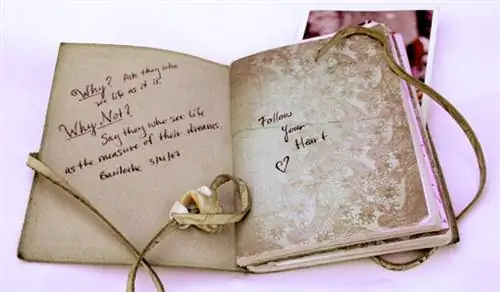 Why? Ask they who
see life as it is.
Why Not?
Say they who see life
as the measure of their dreams.
Bariloche
Follow
Your
Heart